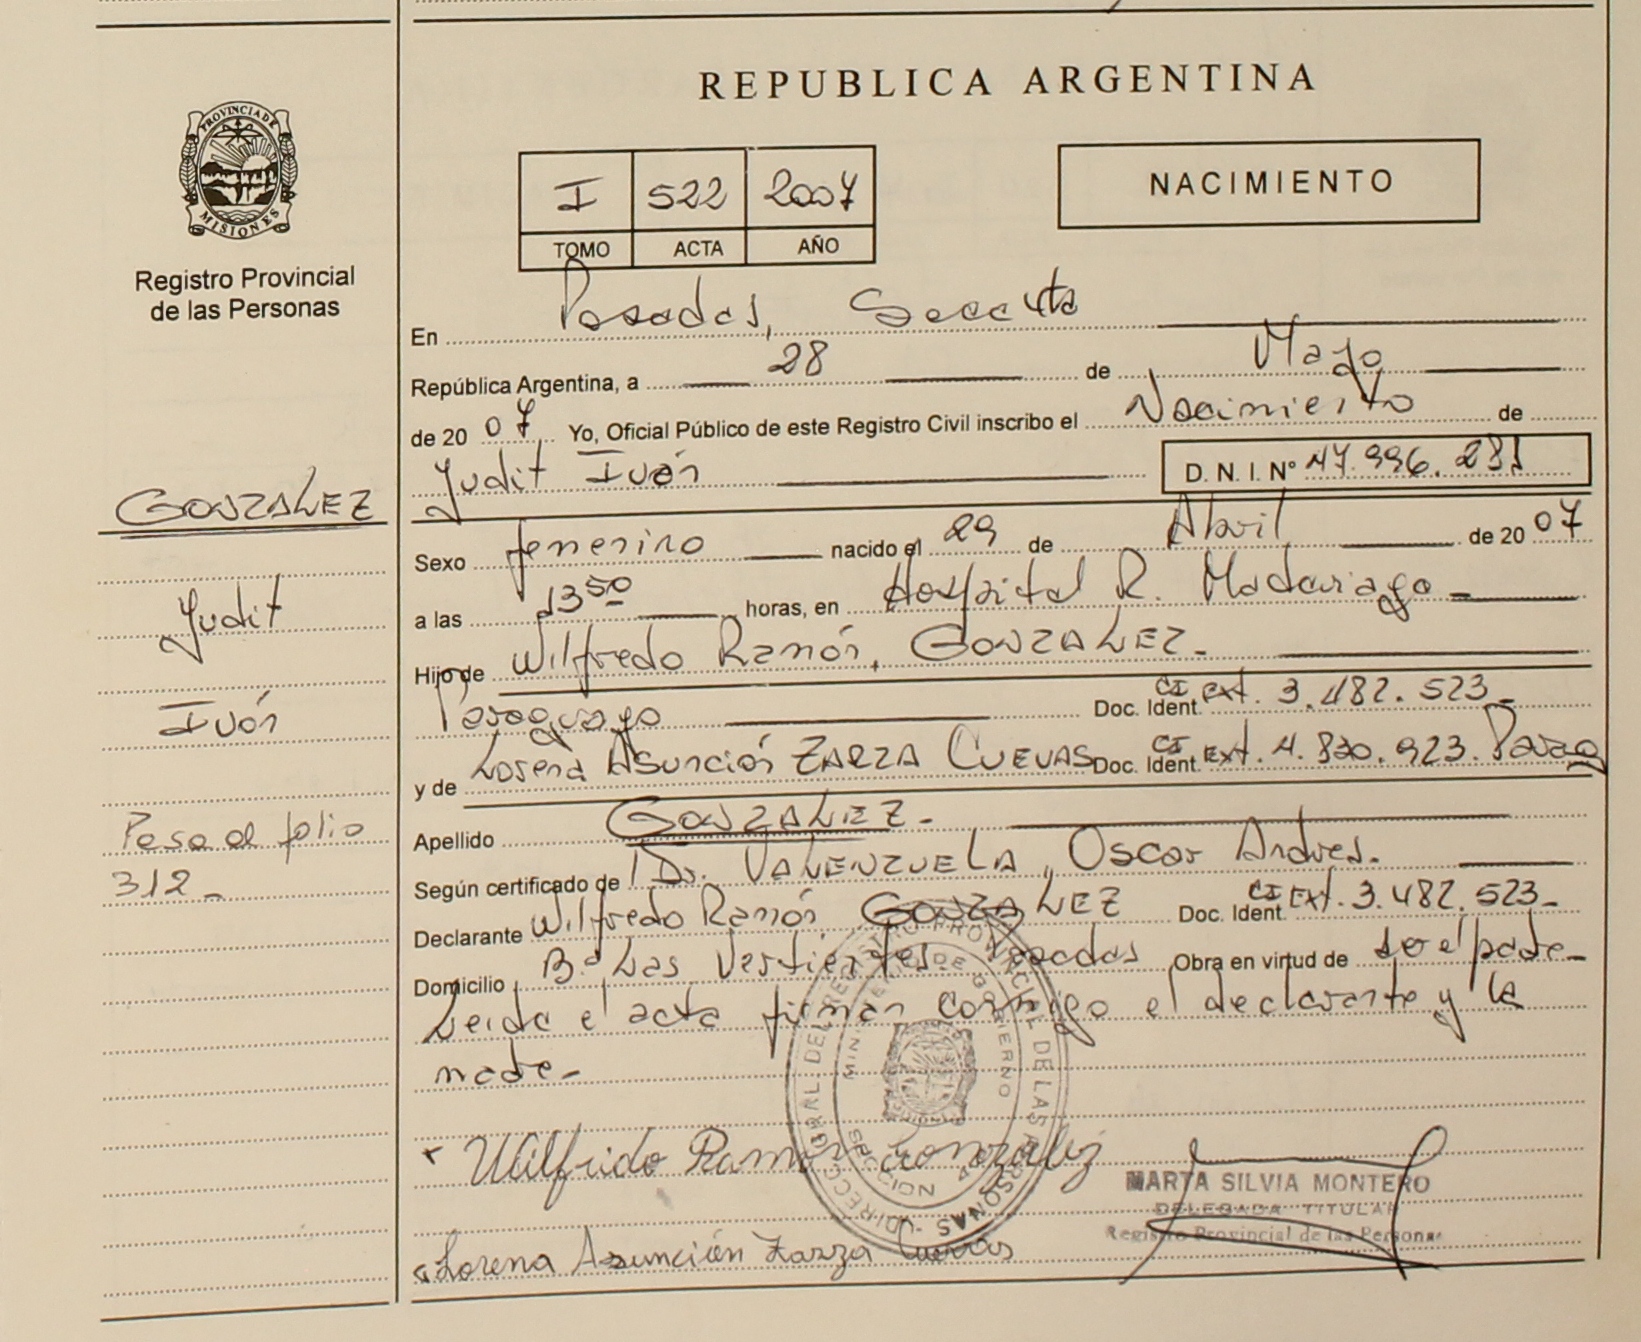 REPUBLICA ARGENTINA
PROVINCIA DE
MISIONES
Registro Provincial
de las Personas
I 522 2007
TOMO ACTA AÑO
NACIMIENTO
En Posadas, Secc 4ta
República Argentina, a 28 de Mayo
de 20 07 Yo, Oficial Público de este Registro Civil inscribo el Nacimiento de
Judit Iván D. N. I. Nº 47.996.281
GONZALEZ
Sexo femenino nacido el 29 de Abril de 20 07
Judit
a las 13 50 horas, en Hospital R. Madariaga
Hijo de Wilfredo Ramón, GONZALEZ
Iván
Paraguayo Doc. Ident. CI Ext. 3.482.523
y de Lorena Asunción ZARZA CUEVAS Doc. Ident. CI Ext. 4.830.923. Parag
Pasa al folio
312
Apellido GONZALEZ
Según certificado de Dr. VALENZUELA, Oscar Andres.
Declarante Wilfredo Ramón GONZALEZ Doc. Ident. CI Ext. 3.482.523
Domicilio Bº Las Vertientes. Posadas Obra en virtud de ser el padre
Leida el acta firman conmigo el declarante y la
madre
DIRECC GRAL DEL REGISTRO PROVINCIAL DE LAS PERSONAS
MINISTERIO DE GOBIERNO
SECCION 4
Wilfrido Ramon Gonzalez
MARTA SILVIA MONTERO
DELEGADA TITULAR
Registro Provincial de las Personas
Lorena Asunción Zarza Cuevas